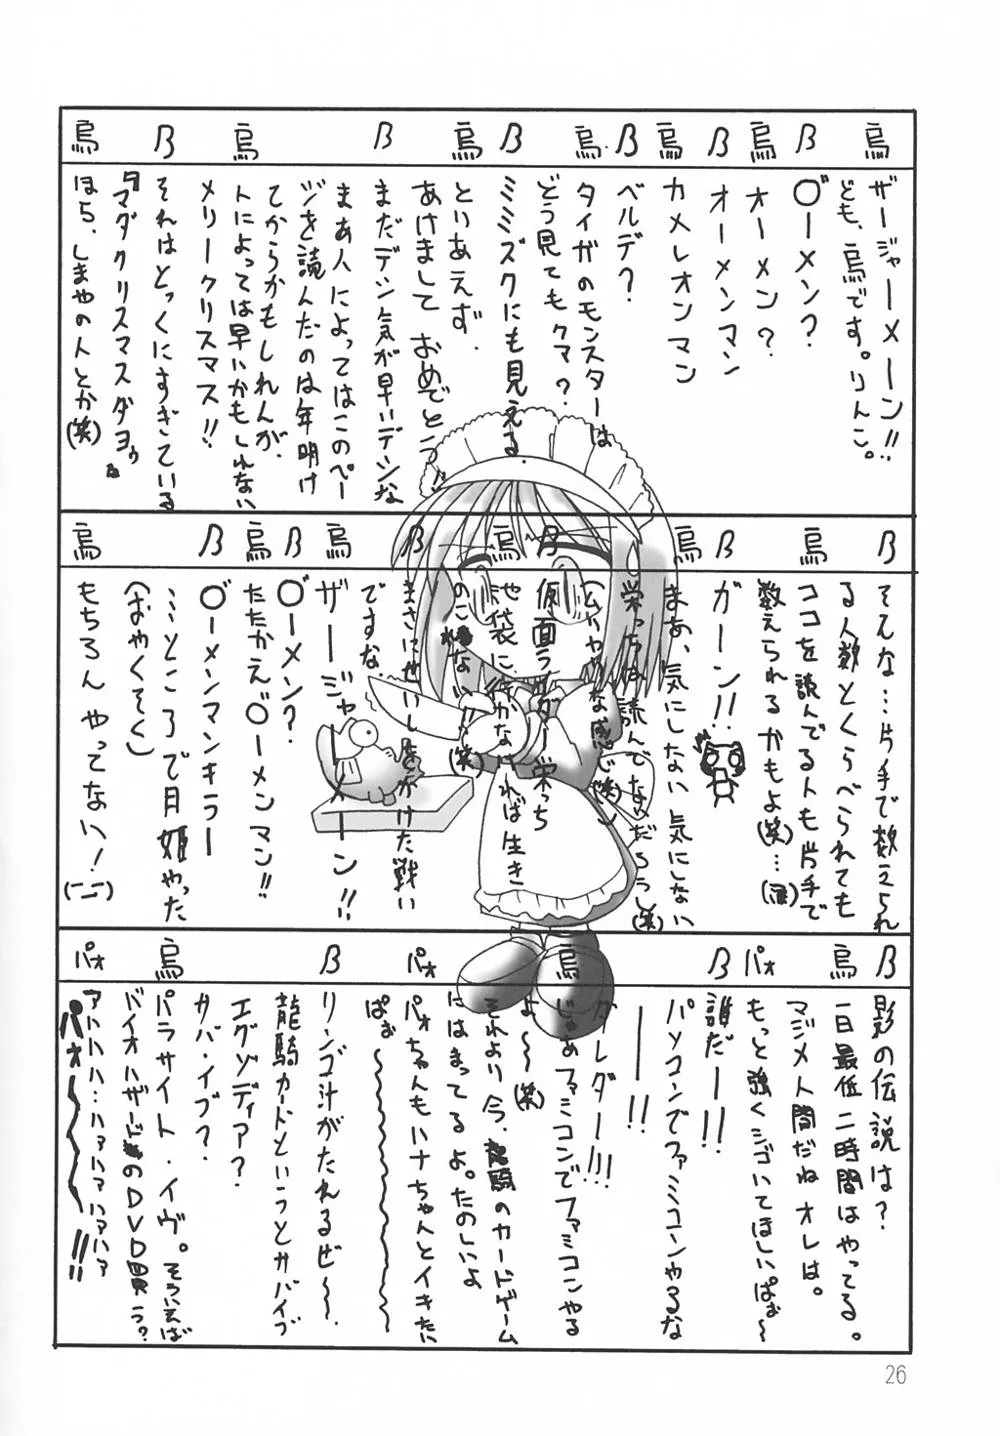 烏
ザージャーメーン!!
ども、烏です。りんこ。
B
〇゛ーメン?
烏
オーメン?
B
オーメンマン
烏
カメレオンマン
B
ベルデ?
烏
タイガのモンスターは
どう見てもクマ?
B
ミミズクにも見える
烏
といあえず、
あけまして おめでとう!!
B
まだデン気が早いデンな
烏
まぁ人によってはこのペー
ジを読んだのは年明け
てからかもしれんが、
トによっては早いかもしれない
メリークリスマス!!
B
それはとっくにすぎている
烏
『マダクリスマスダヨゥ』
ほら、しまやの人とか(笑)
B
そんな…片手で数えられ
る人数とくらべられても
烏
ココを読んでるトも片手で
数えられるかもよ(笑)…(涙)
B
ガーン!!
烏
まぁ、気にしない気にしない
栄っちは読んでないだろうし(笑)
B
仮面ライダー栄っち
烏
池袋に行かなければ生き
のこれない(笑)
B
まさに せいしをかけた戦い
ですな
烏
ザージャーメーン!!
B
〇゛ーメン?
烏
たたかえ〇゛ーメンマン!!
B
〇゛ーメンマンキラー
…ところで月姫やった
(おやくそく)
烏
もちろんやってない!(ーー)
B
影の伝説は?
烏
一日最低二時間はやってる。
マジメ人間だねオレは。
パォ
もっと強くシゴいてほしいぱぉ〜
B
誰だー!!
パソコンでファミコンやるな
ー!!
ダレダー!!!
烏
じゃあファミコンでファミコンやる
よ〜(笑)
それより今、龍騎のカードゲーム
にはまってるよ。たのしいよ
パォ
パォちゃんもハナちゃんとイキたい
ぱぉ〜〜〜
B
リンゴ汁がたれるぜ〜、
龍騎カードというとサバイブ
エグゾディア?
サバ・イブ?
烏
パラサイト・イヴ。そういえば
バイオハザードのDVD買う?
パォ
アハハハハ…ハァハァハァハァ
パォ〜〜〜!!
26